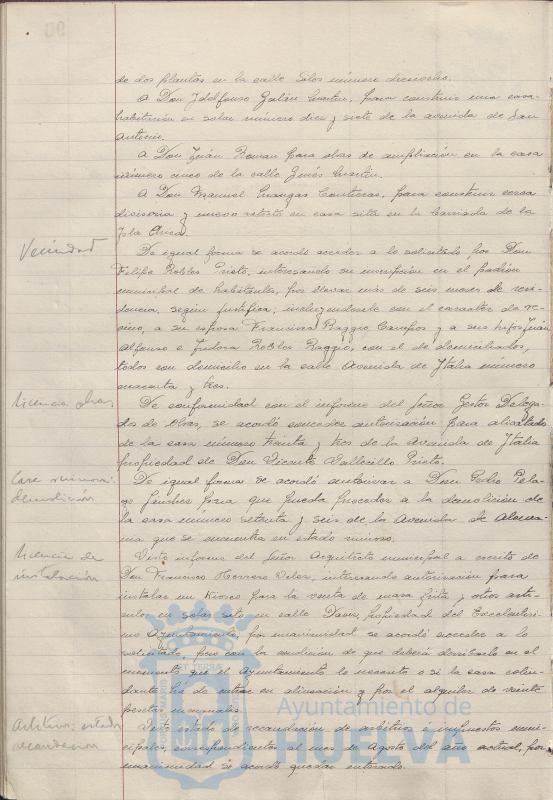 de dos plantas en la calle Silos número dieciocho.
A Don Ildefonso Galán Martín, para construir una casa-
habitación en solar número diez y siete de la avenida de San
Antonio.
A Don Juán Roman para obras de ampliación en la casa
número cinco de la calle Ginés Martín.
A Don Manuel Contreras, para construir cerca
divisoria y nuevo retrete en casa sita en la barriada de la
Isla Chica.
Vecindad
De igual forma se acordó acceder a lo solicitado, por Don
Felipe Robles Prieto, interesando su inscripción en el padrón
municipal de habitantes, por llevar más de seis meses de resi-
dencia, según justifica, incluyendosele con el caracter de ve-
cino, a su esposa Francisca Raggio Campos y a sus hijos Juán
Alfonso e Isidora Robles Raggio, con el de domiciliados,
todos con domicilio en la calle Avenida de Italia número
cuarenta y tres.
Licencia obras
De conformidad con el informe del Señor Gestor Delega-
do de Obras, se acordó conceder autorización para alicatado
de la casa número treinta y tres de la Avenida de Italia
propiedad de Don Vicente Vallecillo Prieto.
Casa ruinosa:
demolición
De igual forma se acordó autorizar a Don Pedro Pela-
yo Sánchez para que pueda proceder a la demolición de
la casa número setenta y seis de la Avenida de Alema-
nia que se encuentra en estado ruinoso.
Licencia de
instalación
Visto informe del Señor Arquitecto municipal a escrito de
Don Francisco Herrero Velez, interesando autorización para
instalar un Kiosco para la venta de masa frita y otros arti-
culos en solar sito en calle propiedad del Excelentísi-
mo Ayuntamiento, por unanimidad, se acordó acceder a lo
solicitado, pero con la condición de que deberá derribarlo en el
momento que el Ayuntamiento lo necesite o si la casa colin-
dante há de entrar en alineación y por el alquiler de veinte
pesetas mensuales.
Arbitrios: estado
recaudación
Visto estado de recaudación de arbitrios é impuestos muni-
cipales, correspondientes al mes de Agosto del año actual, por
unanimidad se acordó quedar enterado.
Ayuntamiento de
HUELVA